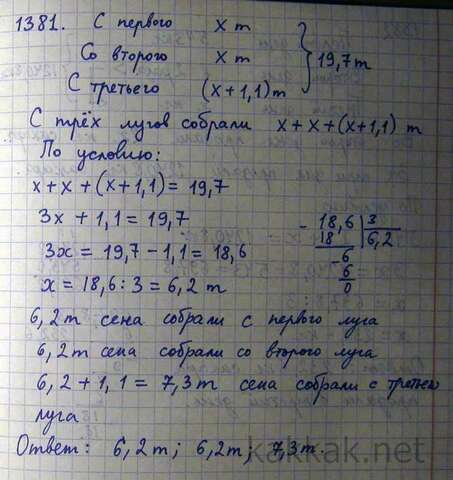 1381. С первого x т
Со второго x т } 19,7 т
С третьего (x+1,1) т
С трёх лугов собрали x+x+(x+1,1) т
По условию:
x+x+(x+1,1) = 19,7
3x + 1,1 = 19,7
3x = 19,7 - 1,1 = 18,6
x = 18,6 : 3 = 6,2 т
- 18,6 | 3
18 | 6,2
-6
6
0
6,2 т сена собрали с первого луга
6,2 т сена собрали со второго луга
6,2 + 1,1 = 7,3 т сена собрали с третьего
луга.
Ответ: 6,2 т; 6,2 т; 7,3 т.
kakkak.net